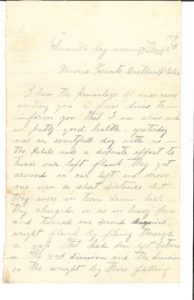 Seventh day morning
Parents Brothers & Sisters
I have the privilege of once more
writing you a few lines to
inform you that I am alive and
in pretty good health. yesterday
was an eventfull day with us
the Rebels made a desperate effort to
turn our left flank they got
around in our left and drove
our men a short distance but
they were in turn driven back
they charged on us in heavy force
and turned our second division
wright flank by filing through
a gap that had been left between
the 2nd division and the division
on the wright by there falling